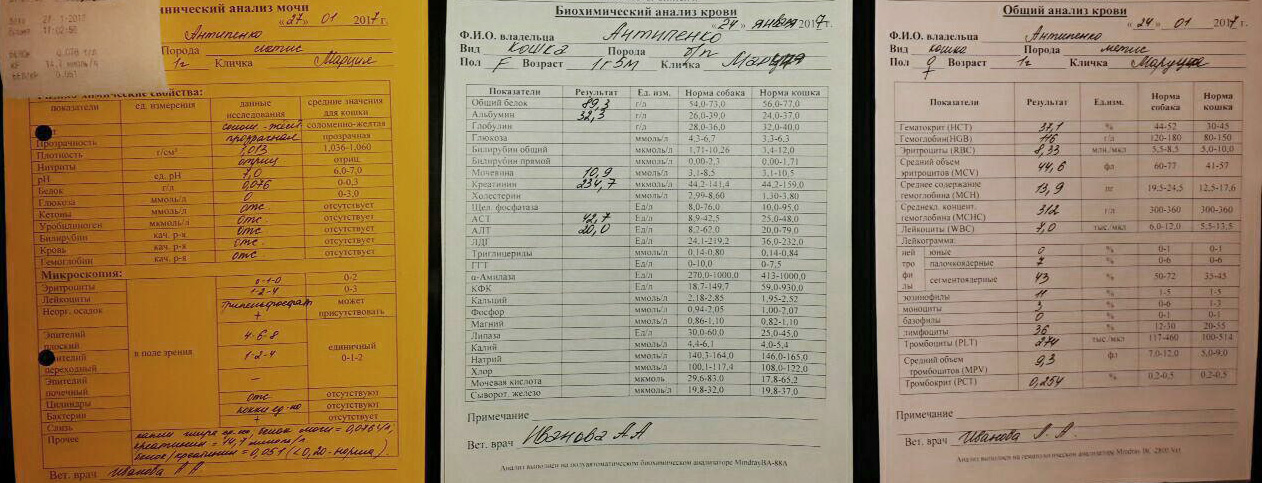 27-1-2017
17:02:56
0,076 г/л
линический анализ мочи
«27» 01 2017 г.
Антипенко
Порода метис
1г Кличка
Физико-химические свойства:
показатели ед. измерения данные исследования средние значения для кошки
солом-желт соломенно-желтая
Прозрачность прозрачная прозрачная
Плотность г/см³ 1,013 1,036-1,060
Нитриты отриц отриц.
pH ед. pH 7,0 6,0-7,0
Белок г/л 0,076 0-0,3
Глюкоза ммоль/л 0 0-3,0
Кетоны ммоль/л отс отсутствует
Уробилиноген мкмоль/л отс отсутствует
Билирубин кач. р-я отс отсутствует
Кровь кач. р-я отс отсутствует
Гемоглобин кач. р-я отс отсутствует
Микроскопия:
Эритроциты 0-1-0 0-2
Лейкоциты 1-2-4 0-3
Неорг. осадок Трипельфосфат + может присутствовать
Эпителий плоский 4-6-8
в поле зрения
единичный 0-1-2
Эпителий переходный 1-2-4
Эпителий почечный —
Цилиндры отс отсутствуют
Бактерии кокки ед-но отсутствуют
Слизь + отсутствует
Прочее капли жира ед-но, белок мочи = 0,076 г/л,
креатинин = 14,7 ммоль/л
белок/креатинин = 0,051 (<0,20-норма)
Вет. врач Иванова А.А.
Биохимический анализ крови
«24» января 2017 г.
Ф.И.О. владельца Антипенко
Вид кошка Порода б/п
Пол F Возраст 1г5м Кличка
Показатели Результат Ед. изм. Норма собака Норма кошка
Общий белок 89,3 г/л 54,0-73,0 56,0-77,0
Альбумин 32,3 г/л 26,0-39,0 24,0-37,0
Глобулин г/л 28,0-36,0 32,0-40,0
Глюкоза ммоль/л 4,3-6,7 3,3-6,3
Билирубин общий мкмоль/л 1,71-10,26 3,4-12,0
Билирубин прямой мкмоль/л 0,00-2,3 0,00-1,71
Мочевина 10,9 ммоль/л 3,1-8,5 3,1-10,5
Креатинин 234,7 мкмоль/л 44,2-141,4 44,2-159,0
Холестерин ммоль/л 2,99-8,60 1,30-3,80
Щел. фосфатаза Ед/л 8,0-76,0 10,0-95,0
АСТ 42,7 Ед/л 8,9-42,5 25,0-48,0
АЛТ 20,0 Ед/л 8,2-62,0 20,0-79,0
ЛДГ Ед/л 24,1-219,2 36,0-232,0
Триглицериды ммоль/л 0,14-0,80 0,14-0,84
ГГТ Ед/л 0-10,0 0-7,5
α-Амилаза Ед/л 270,0-1000,0 413-1000,0
КФК Ед/л 18,7-149,7 59,0-930,0
Кальций ммоль/л 2,18-2,85 1,95-2,52
Фосфор ммоль/л 0,94-2,05 1,00-2,07
Магний ммоль/л 0,86-1,10 0,82-1,10
Липаза Ед/л 30,0-60,0 25,0-45,0
Калий ммоль/л 4,4-6,1 4,0-5,4
Натрий ммоль/л 140,3-164,0 146,0-165,0
Хлор ммоль/л 100,1-117,4 108,0-122,0
Мочевая кислота мкмоль 29,6-83,0 17,8-65,2
Сыворот. железо мкмоль/л 19,8-32,0 19,8-37,0
Примечание
Вет. врач Иванова А.А
Анализ выполнен на полуавтоматическом биохимическом анализаторе Mindray BA-88A
Общий анализ крови
«24» 01 2017 г.
Ф.И.О. владельца Антипенко
Вид кошка Порода метис
Пол ♀ Возраст 1г Кличка Маруся
Показатели Результат Ед.изм. Норма собака Норма кошка
Гематокрит (HCT) 37,1 % 44-52 30-45
Гемоглобин(HGB) 116 г/л 120-180 80-150
Эритроциты (RBC) 8,33 млн./мкл 5,5-8,5 5,0-10,0
Средний объем эритроцитов (MCV) 44,6 фл 60-77 41-57
Среднее содержание гемоглобина (MCH) 13,9 пг 19,5-24,5 12,5-17,6
Среднекл. концент. гемоглобина (MCHC) 312 г/л 300-360 300-360
Лейкоциты (WBC) 8,0 тыс/мкл 6,0-12,0 5,5-13,5
Лейкограмма:
нейтрофилы
юные 0 % 0-1 0-1
палочкоядерные % 0-6 0-6
сегментоядерные 43 % 50-72 35-45
эозинофилы 11 % 1-5 1-5
моноциты 3 % 0-6 1-3
базофилы 0 % 0-1 0-1
лимфоциты 36 % 12-30 20-55
Тромбоциты (PLT) 274 тыс/мкл 117-460 100-514
Средний объем тромбоцитов (MPV) 9,3 фл 7,0-12,0 5,0-9,0
Тромбокрит (PCT) 0,254 % 0,2-0,5 0,2-0,5
Примечание
Вет. врач Иванова А. А.
Анализ выполнен на гематологическом анализаторе Mindray BC 2800 Vet